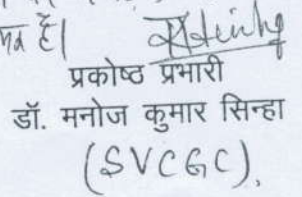 है।
प्रकोष्ठ प्रभारी
डॉ. मनोज कुमार सिन्हा
(SVCGC),